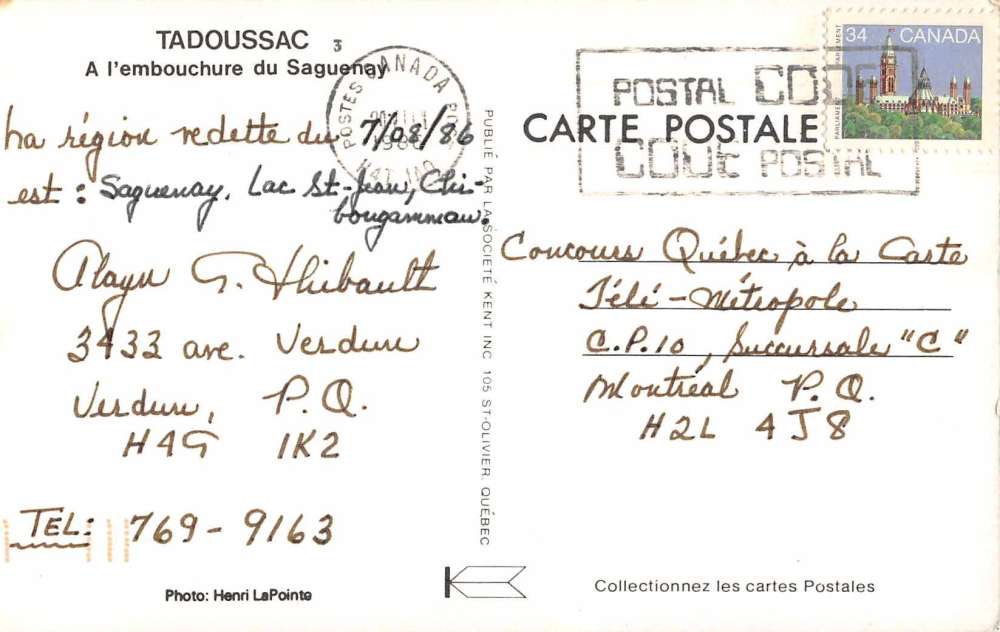 TADOUSSAC
3
A l'embouchure du Saguenay
La région vedette du 7/08/86
est : Saguenay, Lac St-Jean, Chi-
bougammau.
Alayn G. Thibault
3433 ave. Verdun
Verdun, P.Q.
H4G 1K2
TEL: 769-9163
Photo: Henri LaPointe
POSTES CANADA
PUBLIÉ PAR LA SOCIÉTÉ KENT INC 105 ST-OLIVIER, QUÉBEC
POSTAL CODE
CODE POSTAL
34 CANADA
PARLIAMENT PARLEMENT
CARTE POSTALE
Concours Québec à la Carte
Télé-Métropole
C.P.10, Succursale "C"
Montréal P.Q.
H2L 4J8
Collectionnez les cartes Postales